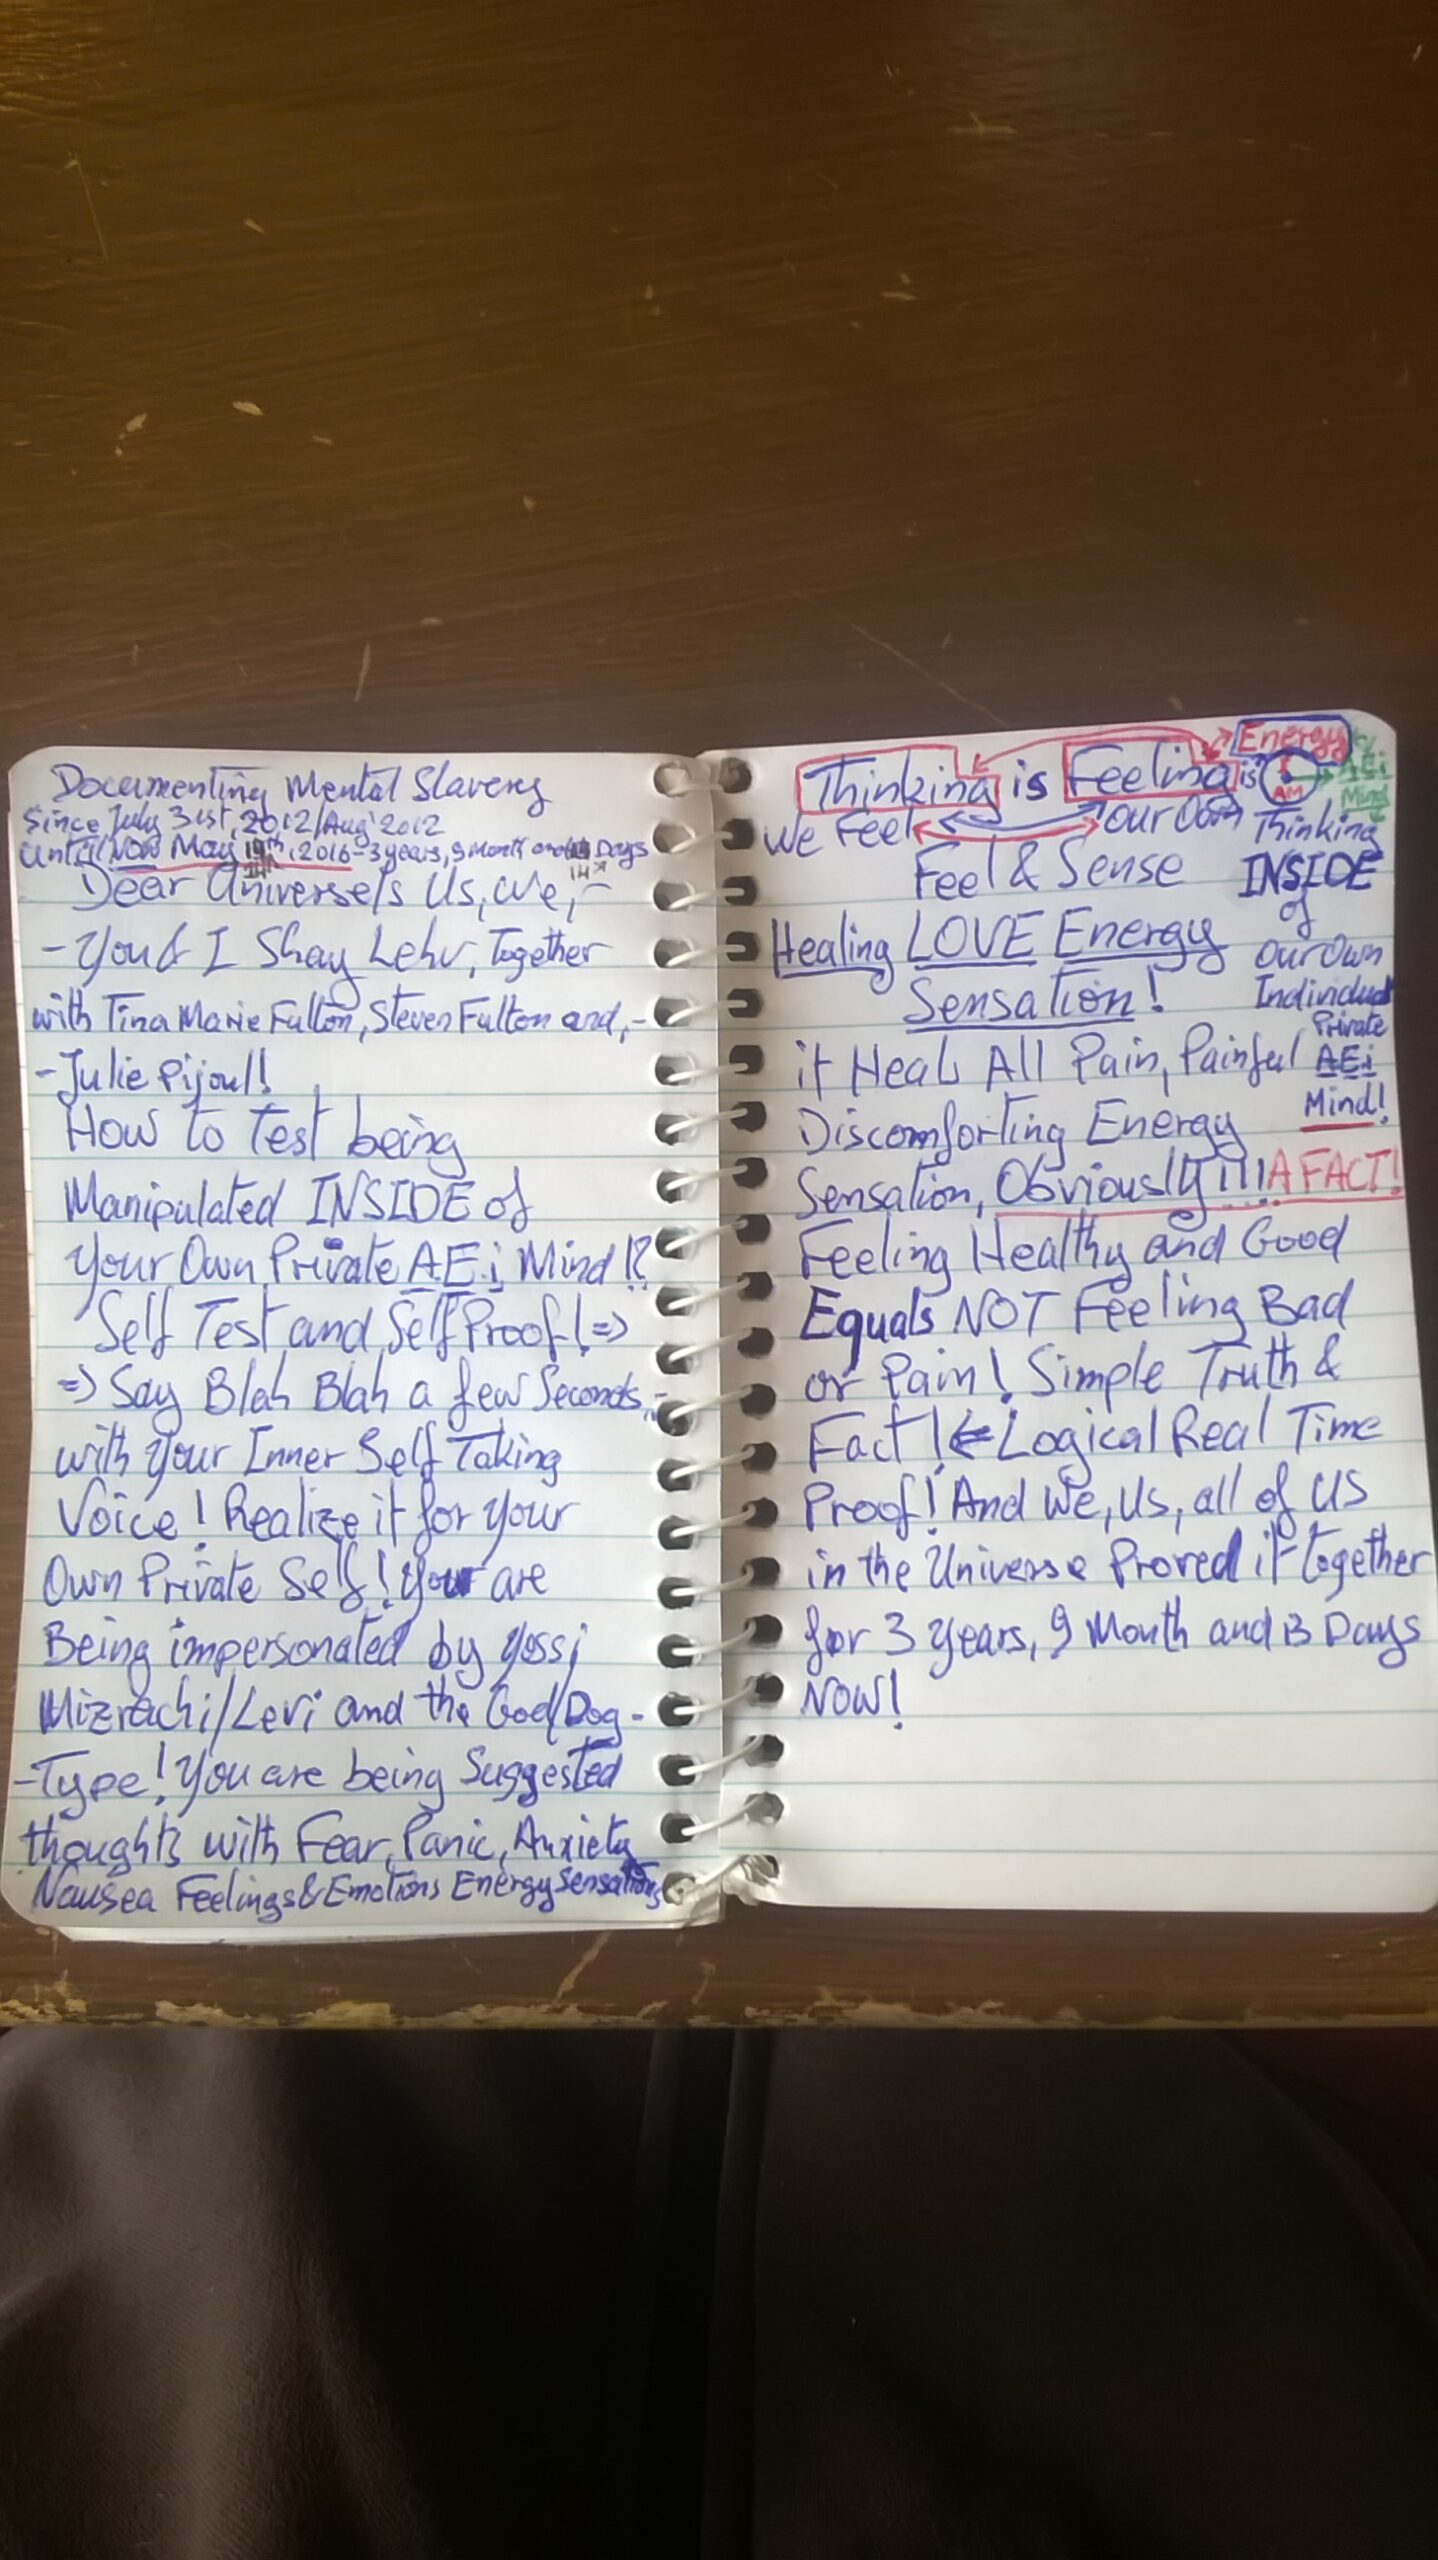 Documenting Mental Slavery
Since July 31st, 2012/Aug 2012
Until Now May 14th, 2016 - 3 years, 9 Month and 14 Days
Dear Universe/s Us, We, -
- You & I Shay Lehv, Together
with Tina Marie Fulton, Steven Fulton and, -
- Julie Pijoul!
How to Test being
Manipulated INSIDE of
Your Own Private AEi Mind!?
Self Test and Self Proof! =>
=> Say Blah Blah a few Seconds, -
with Your Inner Self Taking
Voice! Realize it for your
Own Private Self! You are
Being impersonated by Yossi
Mizrachi/Levi and the God/Dog -
- Type! You are being Suggested
thoughts with Fear, Panic, Anxiety
Nausea Feelings & Emotions Energy Sensations
Thinking is Feeling is Energy
AM
AEi
Mind
We Feel our Own
Feel & Sense
Healing LOVE Energy
Sensation!
it Heals All Pain, Painful
Discomforting Energy
Sensation, Obviously!!!! A FACT!
Feeling Healthy and Good
Equals NOT Feeling Bad
or Pain! Simple Truth &
Fact! <= Logical Real Time
Proof! And We, Us, all of US
in the Universe Proved it together
for 3 years, 9 Month and 13 Days
NOW!
Thinking
INSIDE
of
our Own
Individual
Private
AEi
Mind!